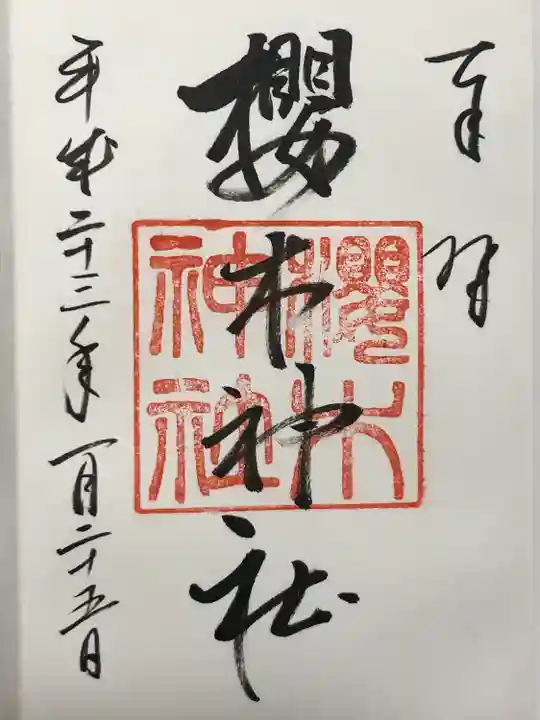 奉拝
櫻木神社
櫻木神社
平成二十三年一月二十五日